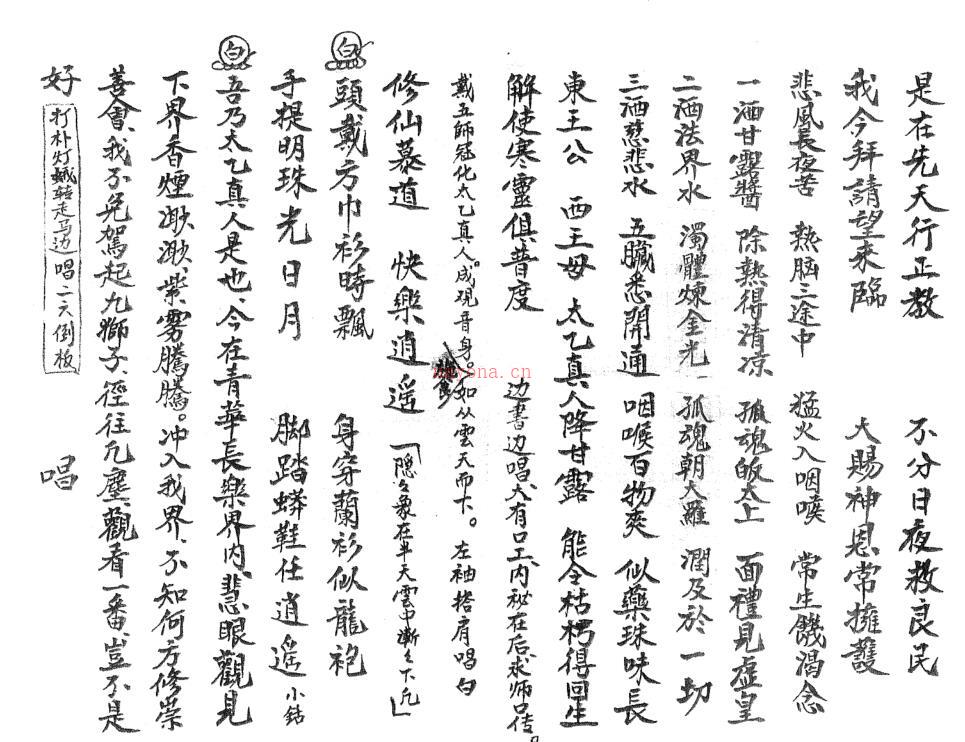 是在先天行正教 不分日夜救良民
我今拜請望來臨 大賜神恩常擁護
悲風長夜苦 熱脑三途中 猛火入咽喉 常生饑渴念
一洒甘露醬 除熱得清凉 孤魂皈太上 面禮見虚皇
二洒法界水 濁體煉金光 孤魂朝大羅 潤及於一切
三洒慈悲水 五臟悉開通 咽喉百物爽 似藥珠味長
東王公 西王母 太乙真人降甘露 能令枯朽得回生
解使寒靈俱普度 边書边唱大有口工、内祕在后、求师口传
戴五師冠化太乙真人。成观音身。如从雲天而下。左袖搭肩唱白
修仙慕道 快樂逍遥 「隐象在半天雲中漸々下凡」
白 頭戴方巾衫時飄 身穿蘭衫似龍袍
手提明珠光日月 脚踏蟒鞋任逍遥 小鈷
白 吾乃太乙真人是也、今在青華長樂界内、悲眼觀見
下界香煙渺渺、紫雾腾腾。冲入我界、不知何方修崇
善會、我不免駕起九獅子、徑往凡塵、觀看一番、豈不是
好 打朴灯蛾转走马边唱二六倒板 唱
nayona.cn